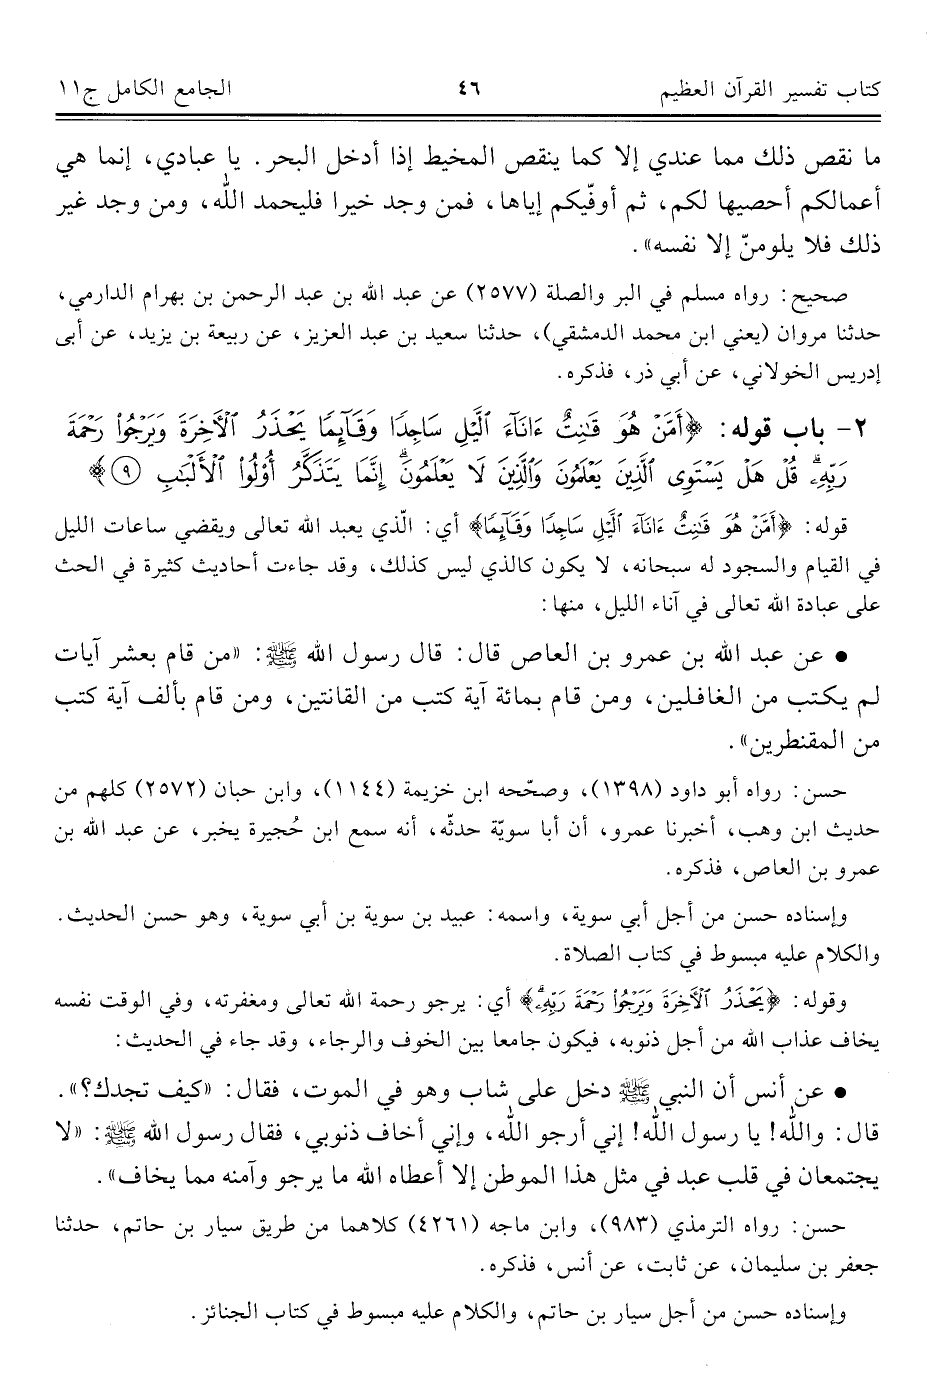 كتاب تفسير القرآن العظيم ٤٦ الجامع الكامل ج١١
ما نقص ذلك مما عندي إلا كما ينقص المخيط إذا أدخل البحر. يا عبادي، إنما هي
أعمالكم أحصيها لكم، ثم أوفّيكم إياها، فمن وجد خيرا فليحمد الله، ومن وجد غير
ذلك فلا يلومنّ إلا نفسه».
صحيح: رواه مسلم في البر والصلة (٢٥٧٧) عن عبد الله بن عبد الرحمن بن بهرام الدارمي،
حدثنا مروان (يعني ابن محمد الدمشقي)، حدثنا سعيد بن عبد العزيز، عن ربيعة بن يزيد، عن أبى
إدريس الخولاني، عن أبي ذر، فذكره.
٢- باب قوله: ﴿أَمَّنۡ هُوَ قَٰنِتٌ ءَانَآءَ ٱلَّيۡلِ سَاجِدٗا وَقَآئِمٗا يَحۡذَرُ ٱلۡأٓخِرَةَ وَيَرۡجُواْ رَحۡمَةَ
رَبِّهِۦۗ قُلۡ هَلۡ يَسۡتَوِي ٱلَّذِينَ يَعۡلَمُونَ وَٱلَّذِينَ لَا يَعۡلَمُونَۗ إِنَّمَا يَتَذَكَّرُ أُوْلُواْ ٱلۡأَلۡبَٰبِ ٩﴾
قوله: ﴿أَمَّنۡ هُوَ قَٰنِتٌ ءَانَآءَ ٱلَّيۡلِ سَاجِدٗا وَقَآئِمٗا﴾ أي: الّذي يعبد الله تعالى ويقضي ساعات الليل
في القيام والسجود له سبحانه، لا يكون كالذي ليس كذلك، وقد جاءت أحاديث كثيرة في الحث
على عبادة الله تعالى في آناء الليل، منها:
● عن عبد الله بن عمرو بن العاص قال: قال رسول الله ﷺ: «من قام بعشر آيات
لم يكتب من الغافلين، ومن قام بمائة آية كتب من القانتين، ومن قام بألف آية كتب
من المقنطرين».
حسن: رواه أبو داود (١٣٩٨)، وصحّحه ابن خزيمة (١١٤٤)، وابن حبان (٢٥٧٢) كلهم من
حديث ابن وهب، أخبرنا عمرو، أن أبا سويّة حدثّه، أنه سمع ابن حُجيرة يخبر، عن عبد الله بن
عمرو بن العاص، فذكره.
وإسناده حسن من أجل أبي سوية، واسمه: عبيد بن سوية بن أبي سوية، وهو حسن الحديث.
والكلام عليه مبسوط في كتاب الصلاة.
وقوله: ﴿يَحۡذَرُ ٱلۡأٓخِرَةَ وَيَرۡجُواْ رَحۡمَةَ رَبِّهِۦۗ﴾ أي: يرجو رحمة الله تعالى ومغفرته، وفي الوقت نفسه
يخاف عذاب الله من أجل ذنوبه، فيكون جامعا بين الخوف والرجاء، وقد جاء في الحديث:
● عن أنس أن النبي ﷺ دخل على شاب وهو في الموت، فقال: «كيف تجدك؟».
قال: والله! يا رسول الله! إني أرجو الله، وإني أخاف ذنوبي، فقال رسول الله ﷺ: «لا
يجتمعان في قلب عبد في مثل هذا الموطن إلا أعطاه الله ما يرجو وآمنه مما يخاف».
حسن: رواه الترمذي (٩٨٣)، وابن ماجه (٤٢٦١) كلاهما من طريق سيار بن حاتم، حدثنا
جعفر بن سليمان، عن ثابت، عن أنس، فذكره.
وإسناده حسن من أجل سيار بن حاتم، والكلام عليه مبسوط في كتاب الجنائز.